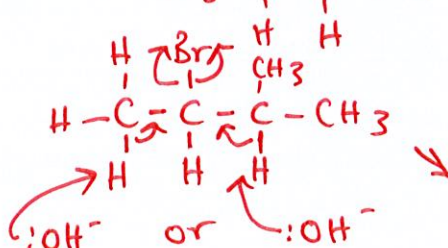 H H
H Br CH3
H - C - C - C - CH3
H H H
:OH- or :OH-